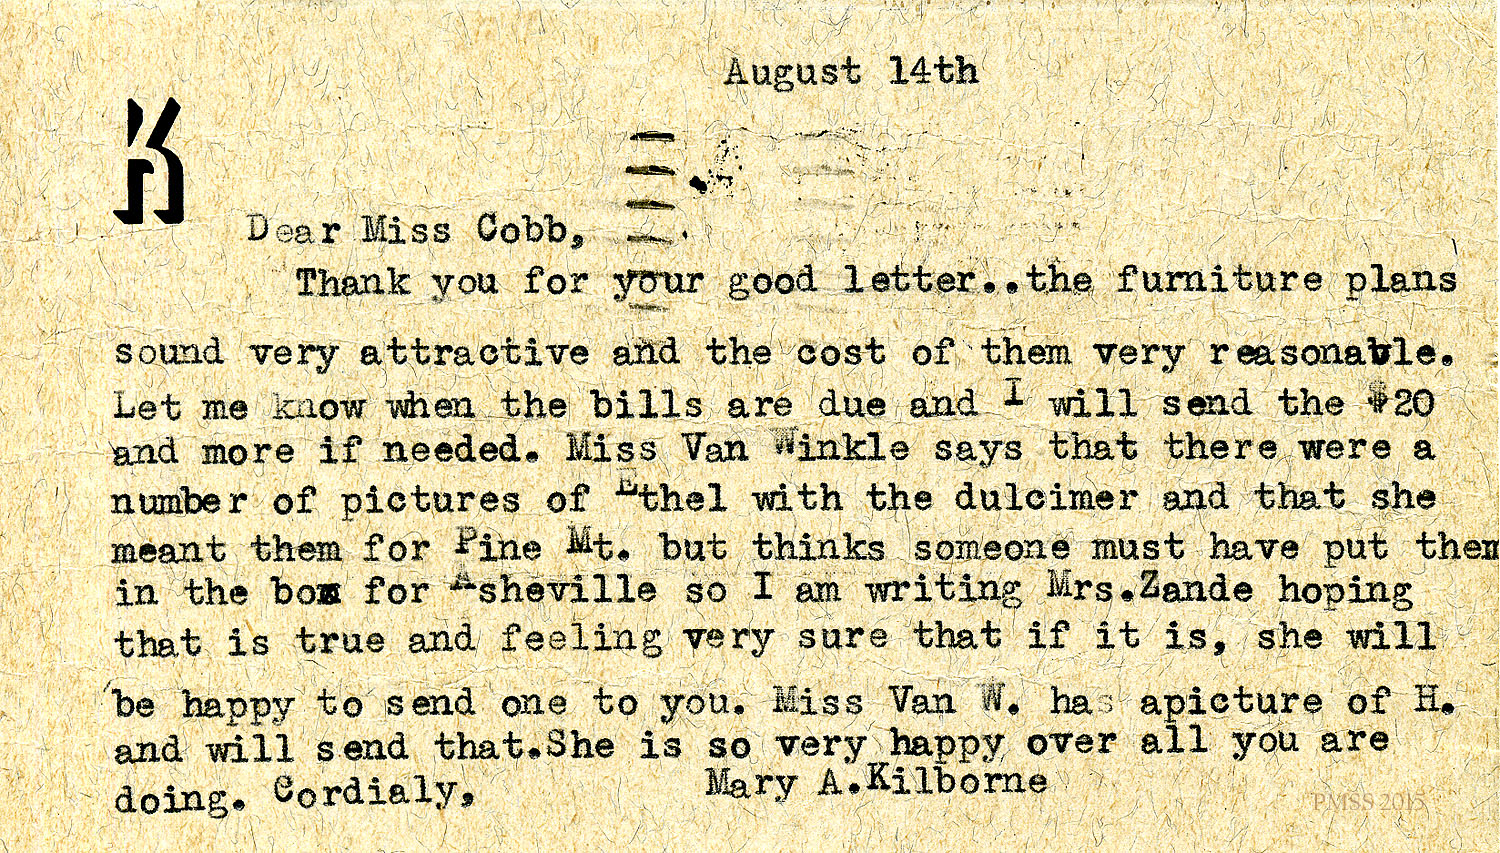 August 14th
K
Dear Miss Cobb,
Thank you for your good letter..the furniture plans
sound very attractive and the cost of them very reasonable.
Let me know when the bills are due and I will send the $20
and more if needed. Miss Van Winkle says that there were a
number of pictures of Ethel with the dulcimer and that she
meant them for Pine Mt. but thinks someone must have put them
in the box for Asheville so I am writing Mrs.Zande hoping
that is true and feeling very sure that if it is, she will
be happy to send one to you. Miss Van W. has apicture of H.
and will send that.She is so very happy over all you are
doing. Cordialy, Mary A.Kilborne
PMSS 2015